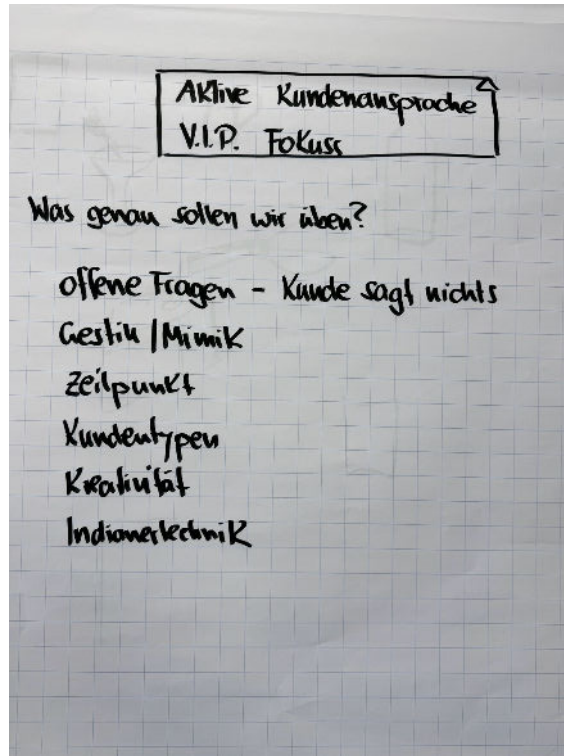 Aktive Kundenansprache
V.I.P. Fokuss
Was genau sollen wir üben?
offene Fragen - Kunde sagt nichts
Gestik | Mimik
Zeitpunkt
Kundentypen
Kreativität
Indianertechnik